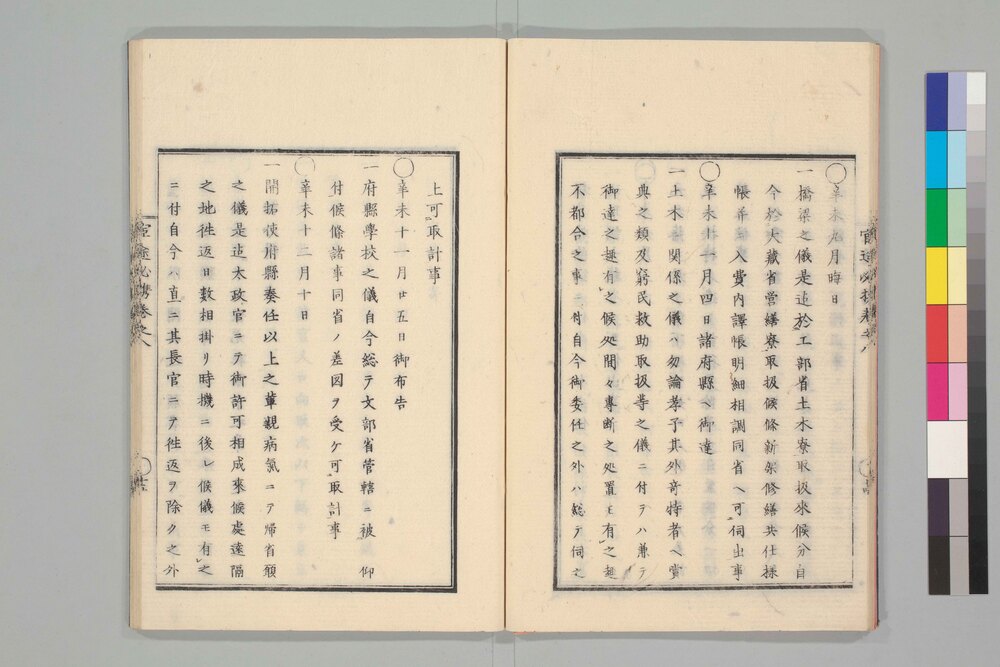 ○辛未九月晦日
一橋梁之儀是迄於工部省土木寮取扱來候分自
今於大藏省營繕寮取扱候條新架修繕共仕様
帳并入費内譯帳明細相調同省ヘ可伺出事
○辛未十月四日諸府縣ヘ御達
一土木ニ関係之儀ハ勿論孝子其外奇特者ヘ賞
典之類及窮民救助取扱等之儀ニ付テハ兼テ
御達之趣有之候処間々専断之処置モ有之趣
不都合之事ニ付自今御委任之外ハ総テ伺之
上可取計事
○辛未十一月廿五日御布告
一府縣學校之儀自今総テ文部省管轄ニ被仰
付候條諸事同省ノ差図ヲ受ケ可取計事
○辛未十二月十日
一開拓使府縣奏任以上之輩親病氣ニテ帰省願
之儀是迄太政官ニテ御許可相成來候處遠隔
之地徃返日數相掛リ時機ニ後レ候儀モ有之
ニ付自今ハ直ニ其長官ニテ徃返ヲ除ク之外
官途必携巻之八